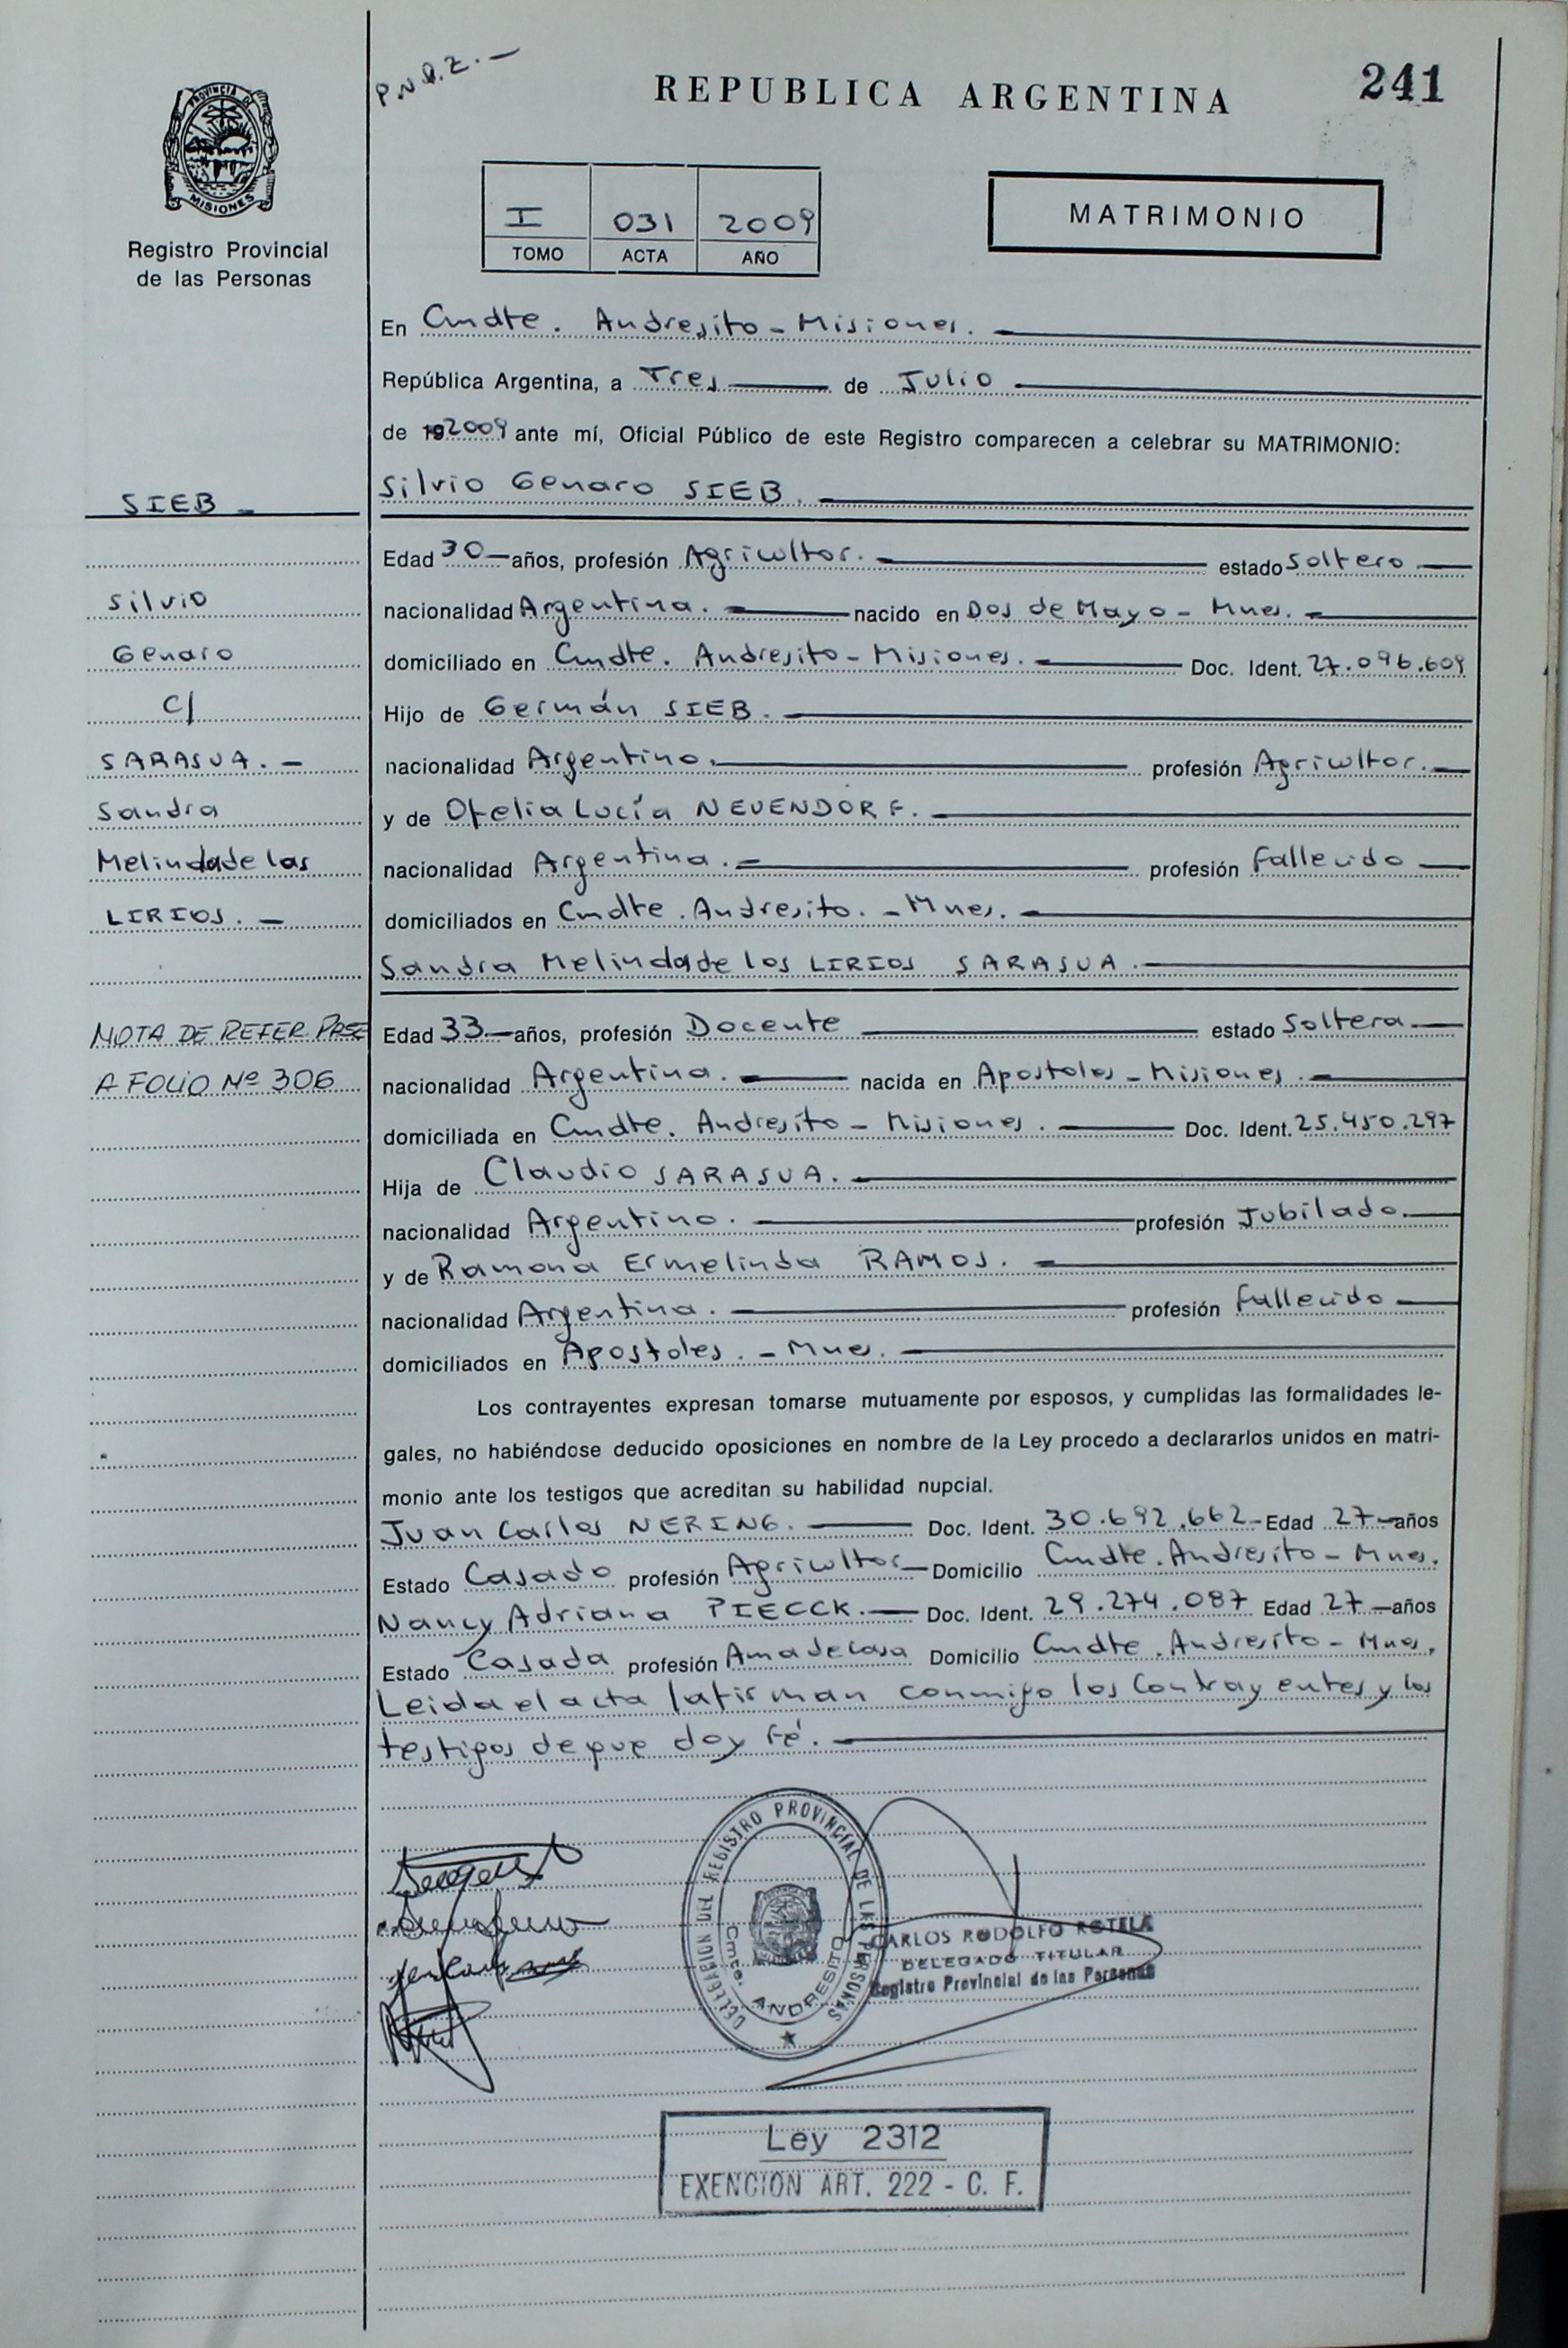 P.N.R.Z.-
REPUBLICA ARGENTINA
241
PROVINCIA DE
MISIONES
Registro Provincial
de las Personas
I 031 2009
TOMO ACTA AÑO
MATRIMONIO
En Cmdte. Andresito - Misiones.
República Argentina, a Tres de Julio
de 192009 ante mí, Oficial Público de este Registro comparecen a celebrar su MATRIMONIO:
Silvio Genaro SIEB.
Edad 30 años, profesión Agricultor. estado Soltero
nacionalidad Argentina. nacido en Dos de Mayo - Mnes.
domiciliado en Cmdte. Andresito - Misiones. Doc. Ident. 27.096.609
Hijo de Germán SIEB.
nacionalidad Argentino. profesión Agricultor.
y de Ofelia Lucía NEUENDORF.
nacionalidad Argentina. profesión Fallecido
domiciliados en Cmdte. Andresito. - Mnes.
Sandra Melinda de los LIRIOS SARASUA.
Edad 33 años, profesión Docente estado Soltera
nacionalidad Argentina. nacida en Apostoles - Misiones.
domiciliada en Cmdte. Andresito - Misiones. Doc. Ident. 25.450.297
Hija de Claudio SARASUA.
nacionalidad Argentino. profesión Jubilado.
y de Ramona Ermelinda RAMOS.
nacionalidad Argentina. profesión Fallecido
domiciliados en Apostoles. - Mnes.
Los contrayentes expresan tomarse mutuamente por esposos, y cumplidas las formalidades le-
gales, no habiéndose deducido oposiciones en nombre de la Ley procedo a declararlos unidos en matri-
monio ante los testigos que acreditan su habilidad nupcial.
Juan Carlos NERING. Doc. Ident. 30.692.662 Edad 27 años
Estado Casado profesión Agricultor Domicilio Cmdte. Andresito - Mnes.
Nancy Adriana PIECCK. Doc. Ident. 29.274.087 Edad 27 años
Estado Casada profesión Ama de casa Domicilio Cmdte. Andresito - Mnes.
Leida el acta la firman conmigo los Contrayentes y los
testigos de que doy fé.
SIEB -
Silvio
Genaro
C/
SARASUA. -
Sandra
Melinda de las
LIRIOS. -
NOTA DE REFER PASE
A FOLIO Nº 306
DELEGACION DEL REGISTRO PROVINCIAL DE LAS PERSONAS
Cmte. ANDRESITO
CARLOS RODOLFO ROTELA
DELEGADO TITULAR
Registro Provincial de las Personas
Ley 2312
EXENCION ART. 222 - C. F.